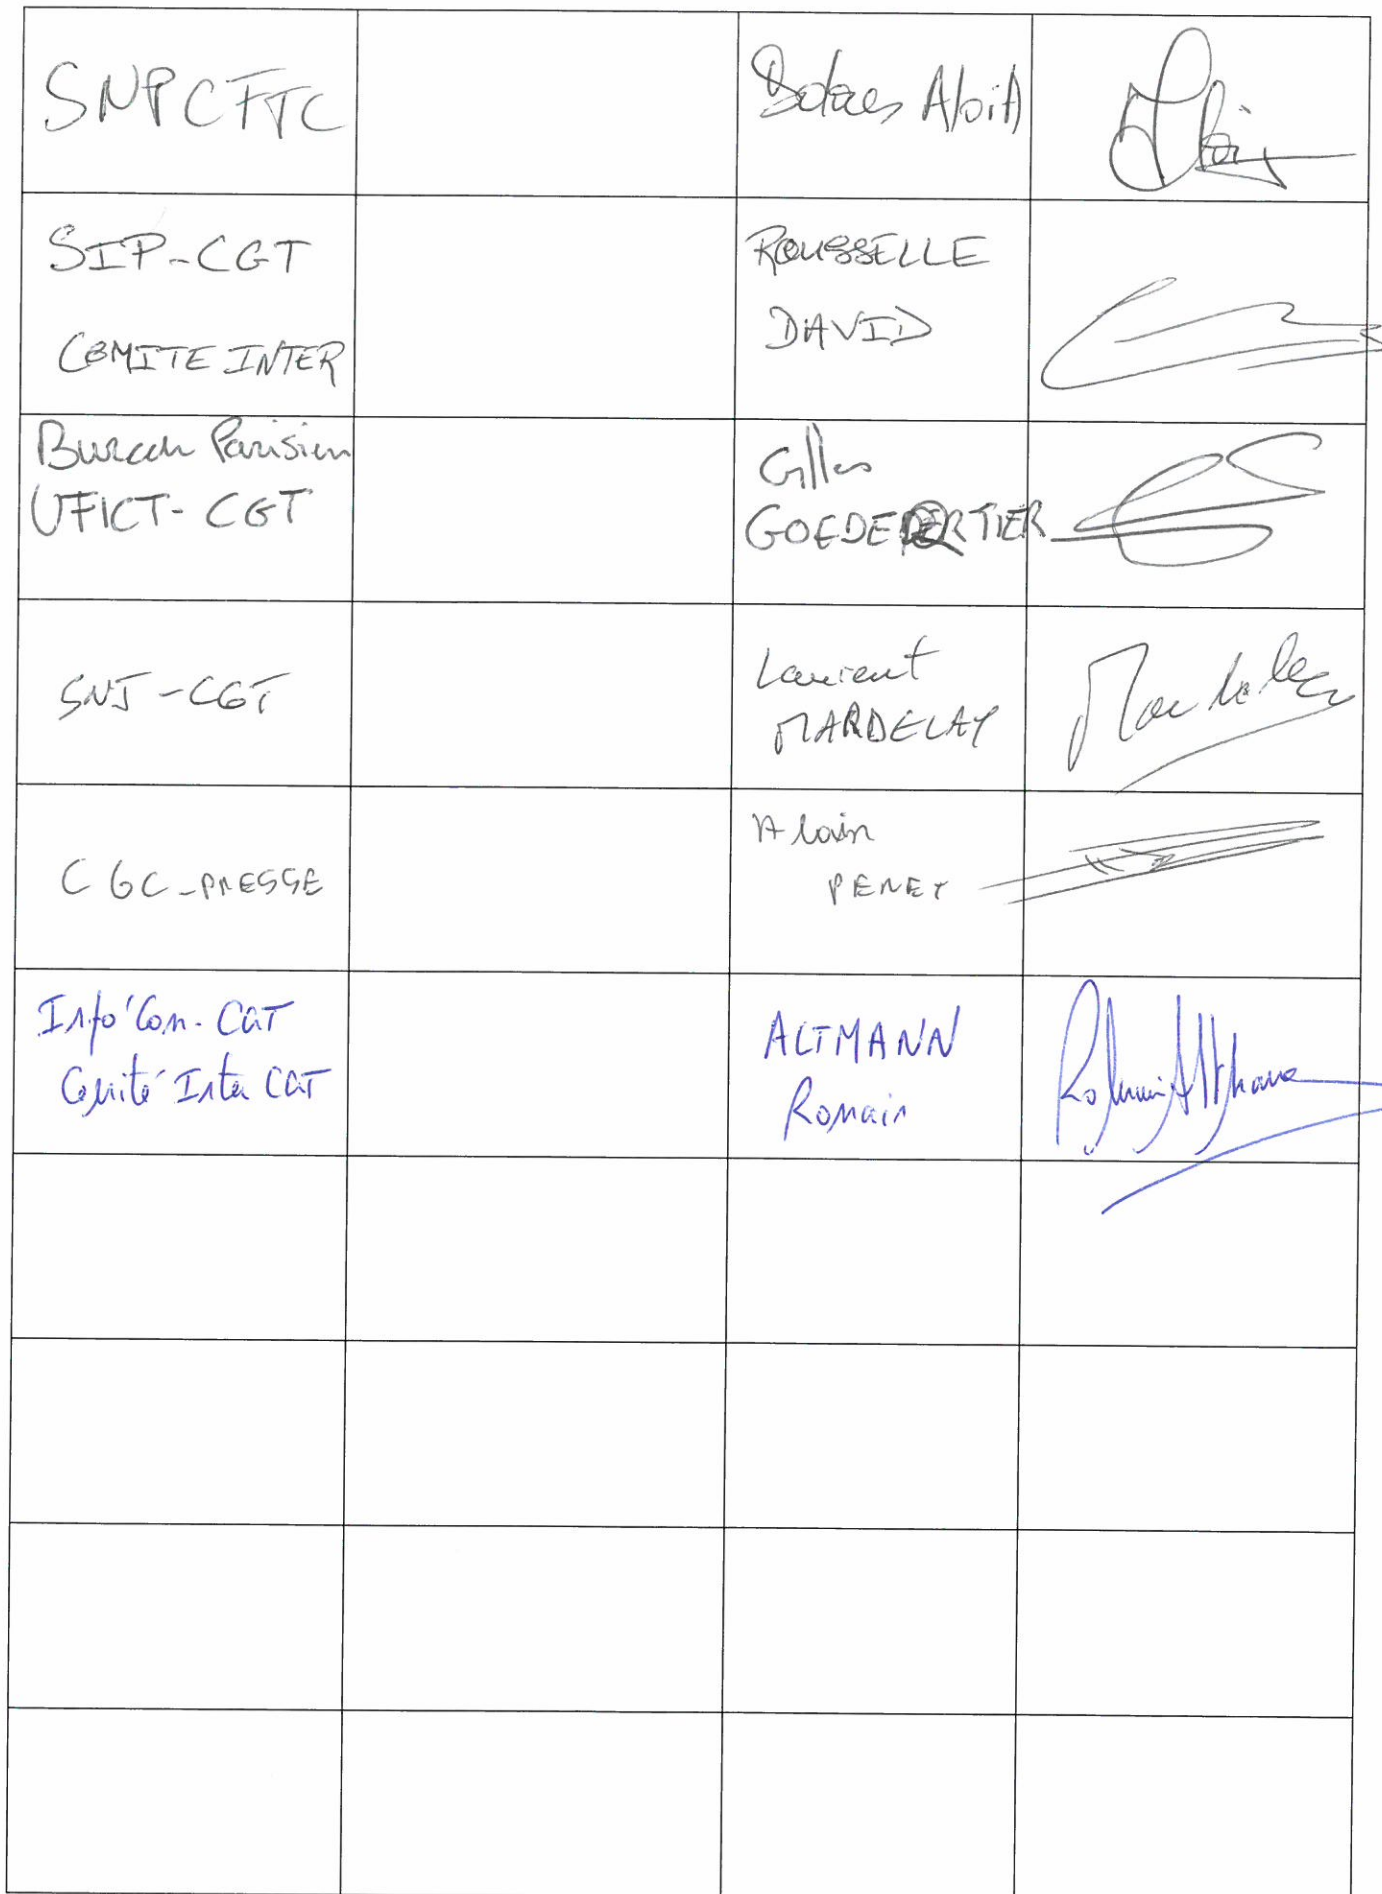 SNPCFTC
SIP-CGT
COMITE INTER
ROUSSELLE
DAVID
Bureau Parisien
UFICT-CGT
Gilles
GOEDEDERTIER
SNJ-CGT
Laurent
MARDELAY
CGC-PRESSE
Alain
PENET
Info'Com-CGT
Comité Inter CGT
ALTMANN
Romain